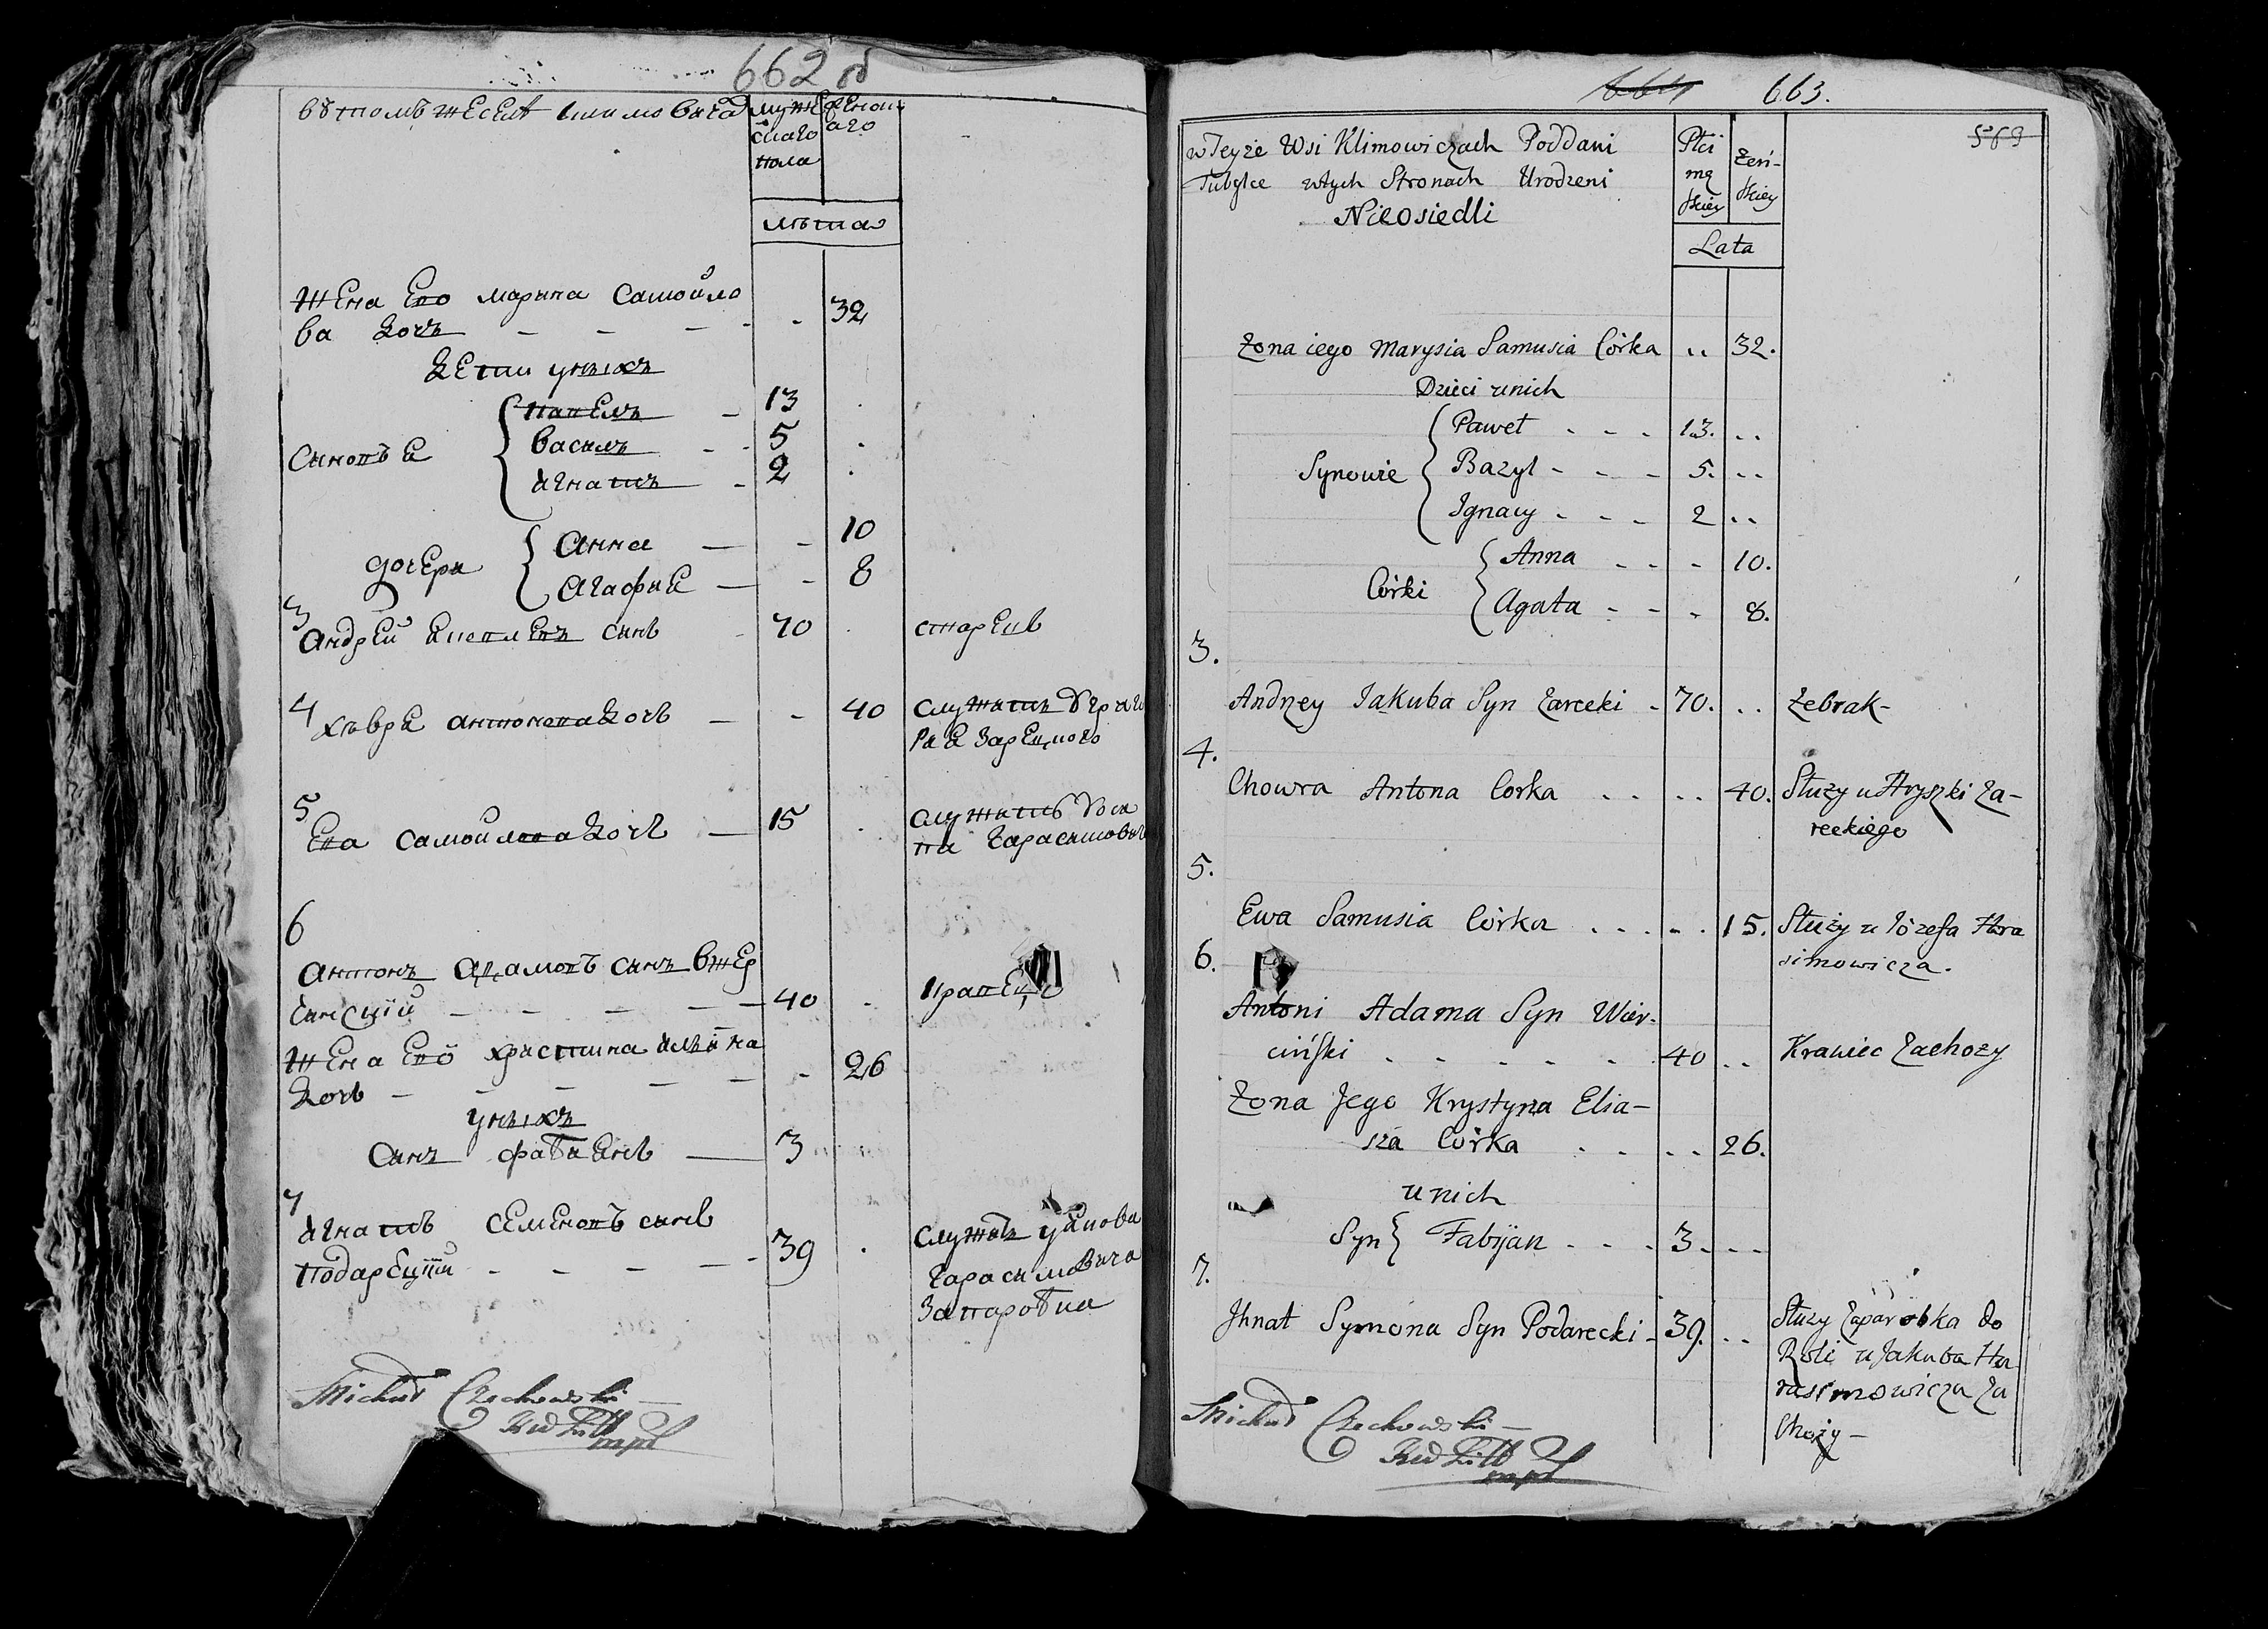 662 об
вътомъ же селѣ климовича
мужеска
скаго
пола
женск
аго
лѣта
жена Ево марина самойло
ва дочъ - - - - 32
дети унихъ
павелъ - 13
Синовѣя
василъ - - 5
игнатъ - 2
Анна - - 10
дочери
Агафия - - 8
3
андрей яковлевъ синъ - 70 старецъ
4
хввря антонова дочъ - - 40 служитъ
Зарецкого
5
Ева самойлова дочъ - 15 служитъ
Гарасимович
6
антонъ адамовъ синъ вжер
синский - - - - 40 кравецъ
жена Ево христина илиина
дочъ - - - - - 26
унихъ
синъ фабиянъ - 3
7
игнатъ семеновъ синъ
служитъ уякова
подарецкий - - - - 39
Гарасимовича
Запаробка
Michał Czechowski
mpl
664 663.
569
w Teyże Wsi Klimowiczach Poddani
Tubylce wtych Stronach Urodzeni
Nieosiedli
Płci
mę
skiey
Żeń-
skiey
Lata
Żona iego Marysia Samusia Córka .. 32.
Dzieci unich
Paweł - - - 13. ..
Synowie
Bazyl - - - 5. ..
Ignacy - - - 2 ..
Anna - - - 10.
Córki
Agata - - - 8.
3.
Andrzey Jakuba Syn Zarecki - 70. .. Żebrak -
4.
Chowra Antona Corka . . .. 40. Służy u Hryszki Za-
reckiego
5.
Ewa Samusia Córka . . . - . 15. Służy u Józefa Hara
simowicza.
6.
Antoni Adama Syn Wier-
ciński . - - - - - 40 .. Krawiec Zachoży
Żona Jego Krystyna Elia-
sza Córka . . .. 26.
unich
Syn Fabijan - - - 3. ..
7.
Jhnat Symona Syn Podarecki - 39. .. Służy Zaparobka do
Roli u Jakuba Ha-
rasimowicza Za
Choży -
Michał Czechowski
mpl